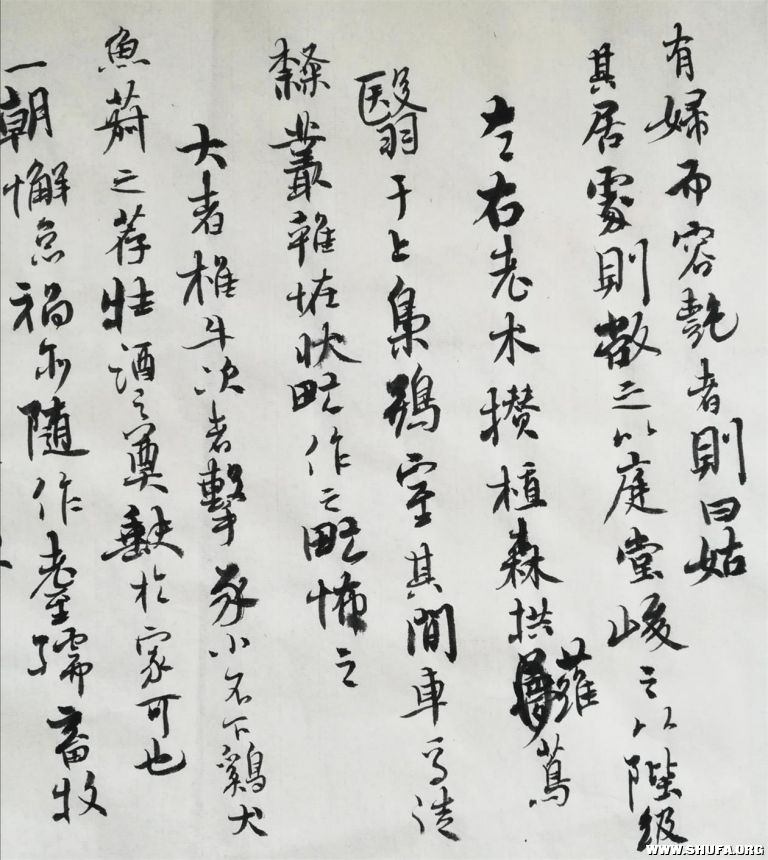 有婦而容艷者則曰姑
其居處則敞之以庭堂峻之以陛級
左右老木攢植森拱蘿蔦
翳于上梟鴞室其間車馬徒
隸叢雜怪狀甿作之甿怖之
大者椎牛次者擊豕小不下鷄犬
魚菽之荐牲酒之奠缺於家可也
一朝懈怠禍亦隨作耄孺畜牧
WWW.SHUFA.ORG